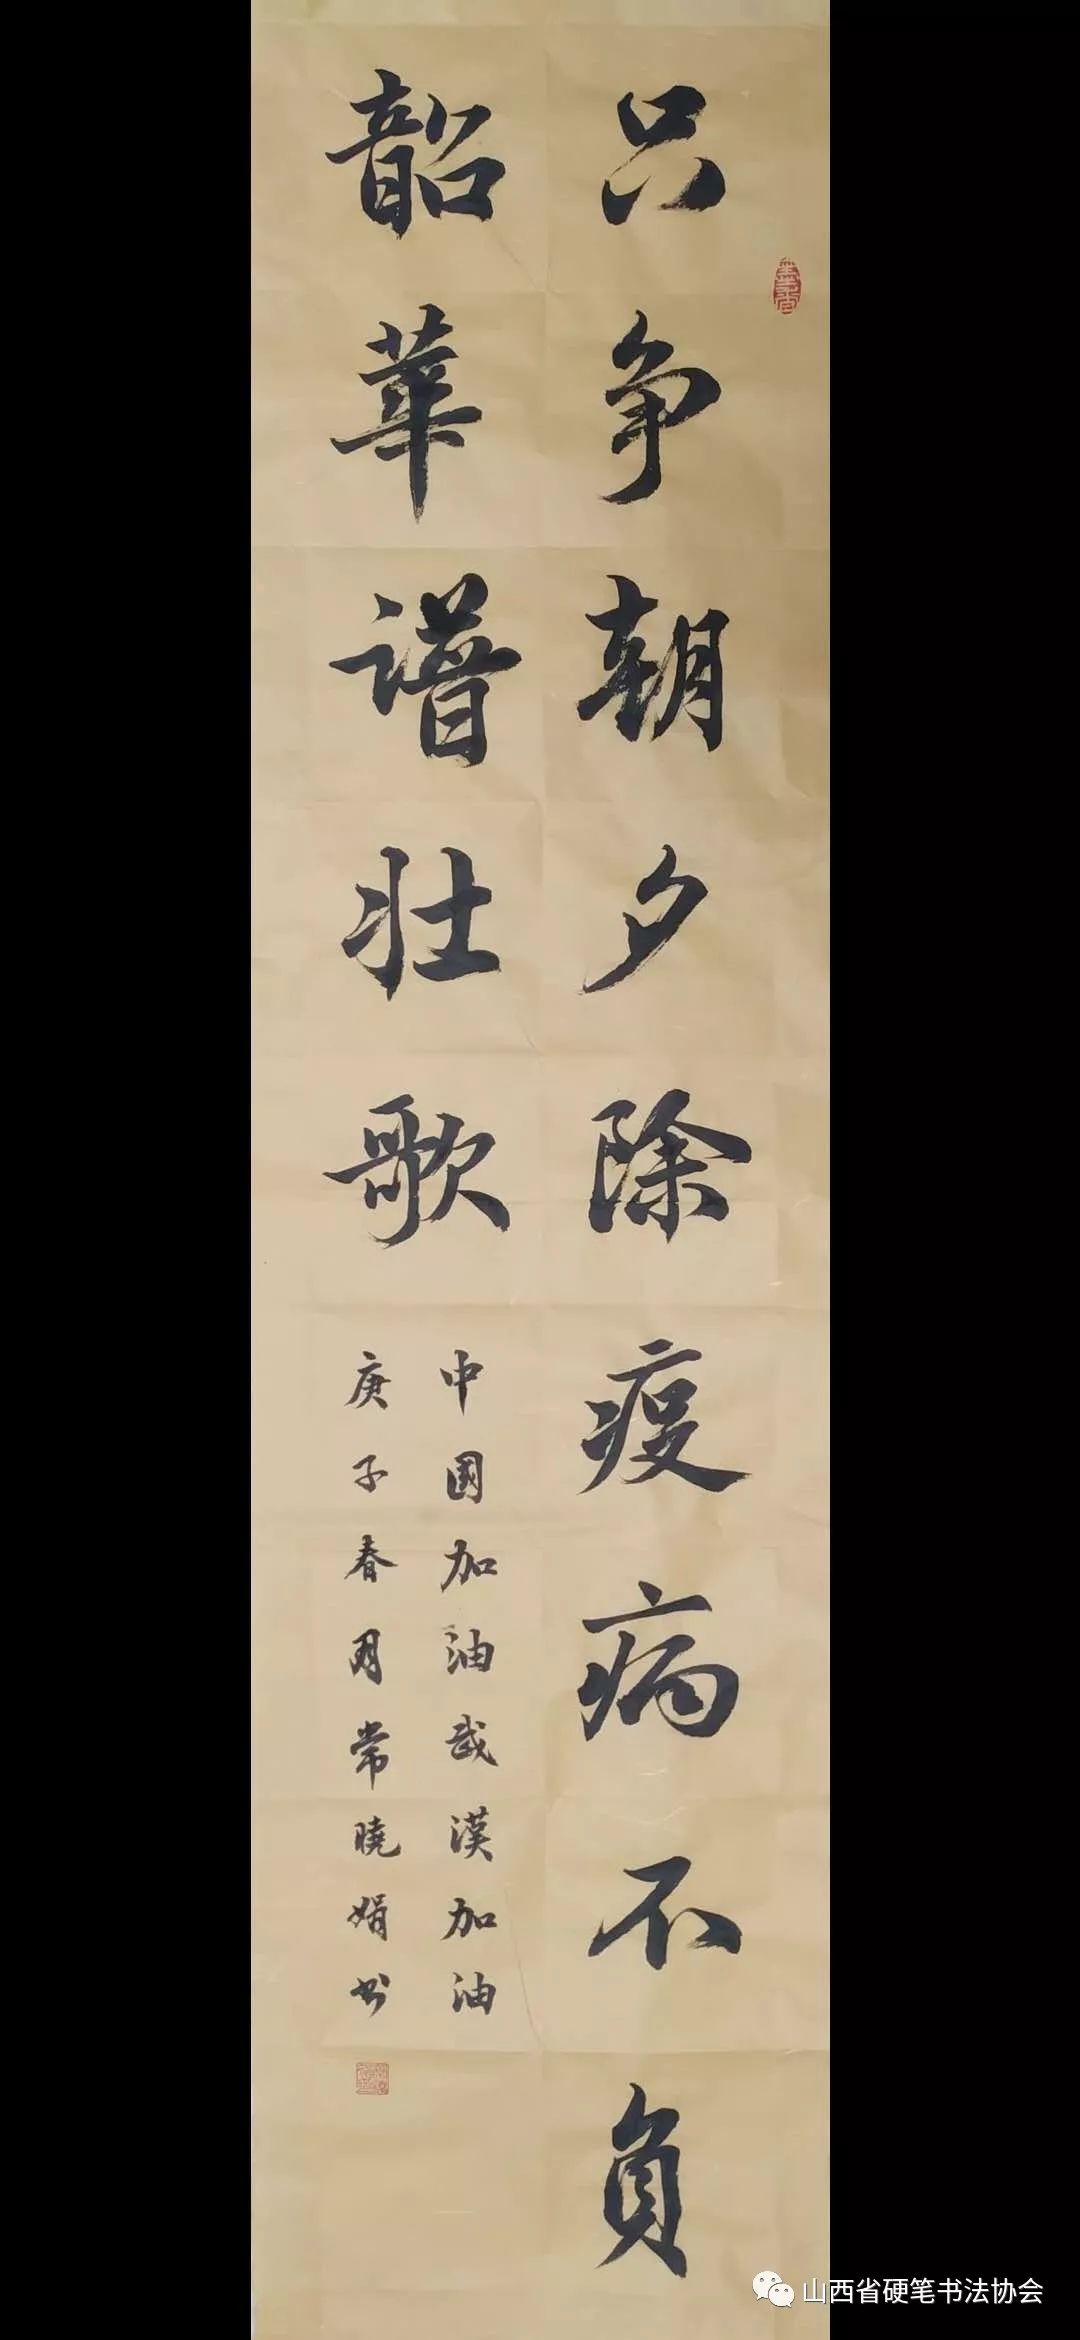 只争朝夕除疫病不負
韶華譜壮歌
中國加油武漢加油
庚子春月常曉娟书
墨香
山西省硬笔书法协会